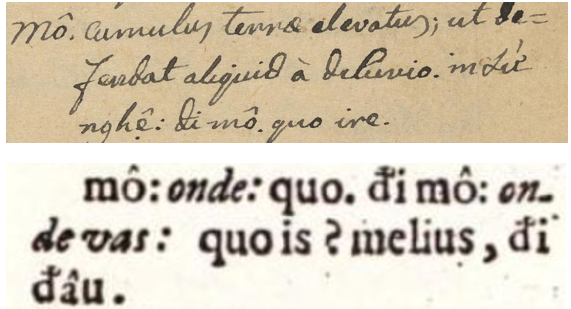 Mô. cumulus terræ elevatus; ut de=
fendat aliquid à diluvio. in Sứ
nghệ: đi mô. quo ire.
mô: onde: quo. đi mô: on-
de vas: quo is? melius, đi
đâu.